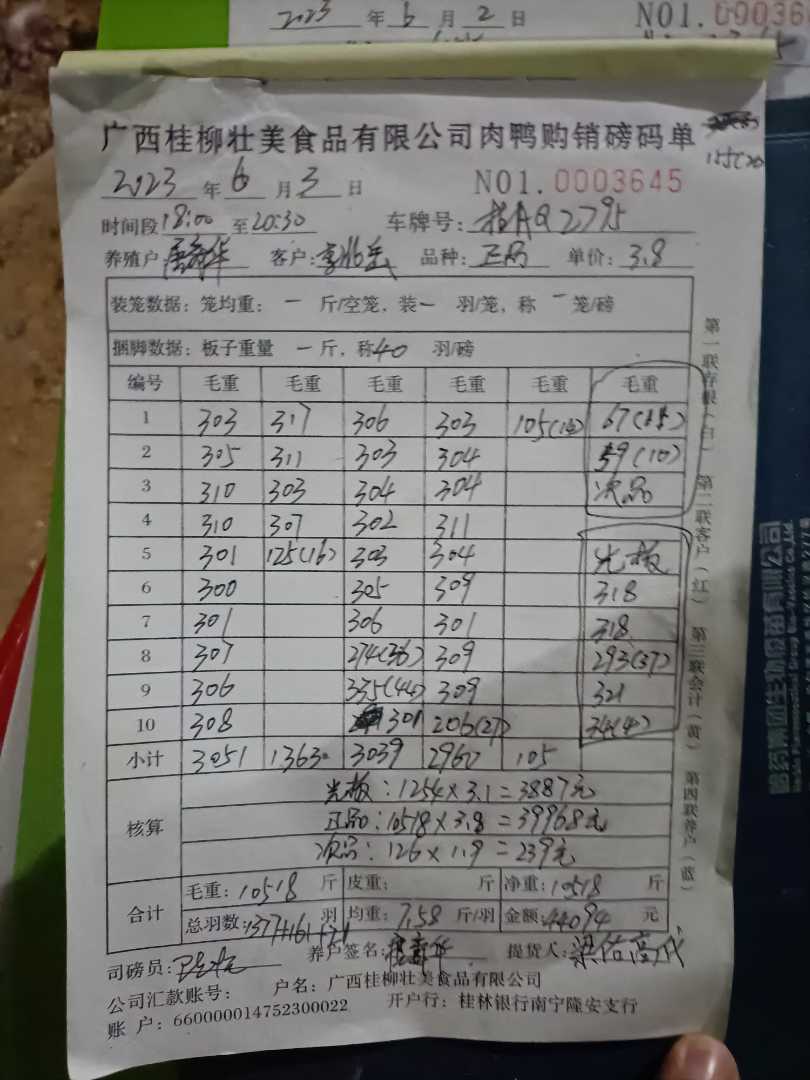 2023 年 6 月 2 日 NO1.00036
广西桂柳壮美食品有限公司肉鸭购销磅码单
2023 年 6 月 3 日 NO1.0003645
时间段 18:00 至 20:30 车牌号: 桂AQ2795
养殖户 客户: 品种: 正品 单价: 3.8
装笼数据: 笼均重: 一 斤/空笼, 装 一 羽/笼, 称 一 笼/磅
捆脚数据: 板子重量 一 斤, 称 40 羽/磅
编号 毛重 毛重 毛重 毛重 毛重 毛重
1 303 317 306 303 105
2 305 311 303 304 59(10)
3 310 303 304 304 次品
4 310 307 302 311
5 301 125(16) 303 304 光板
6 300 305 309 318
7 301 306 301 318
8 307 274(36) 309 293(37)
9 306 335(44) 309 321
10 308 301 206(27)
小计 3051 1363 3039 2960 105
核算
光板: 1254×3.1=3887元
正品: 10518×3.8=39968元
次品: 126×1.9=239元
合计
毛重: 10518 斤 皮重: 斤 净重: 10518 斤
总羽数: 羽 均重: 7.58 斤/羽 金额: 44094 元
司磅员: 养户签名: 提货人:
公司汇款账号: 户名: 广西桂柳壮美食品有限公司
账 户: 660000014752300022 开户行: 桂林银行南宁隆安支行
第一联存根(白) 第二联客户(红) 第三联会计(黄) 第四联养户(蓝)